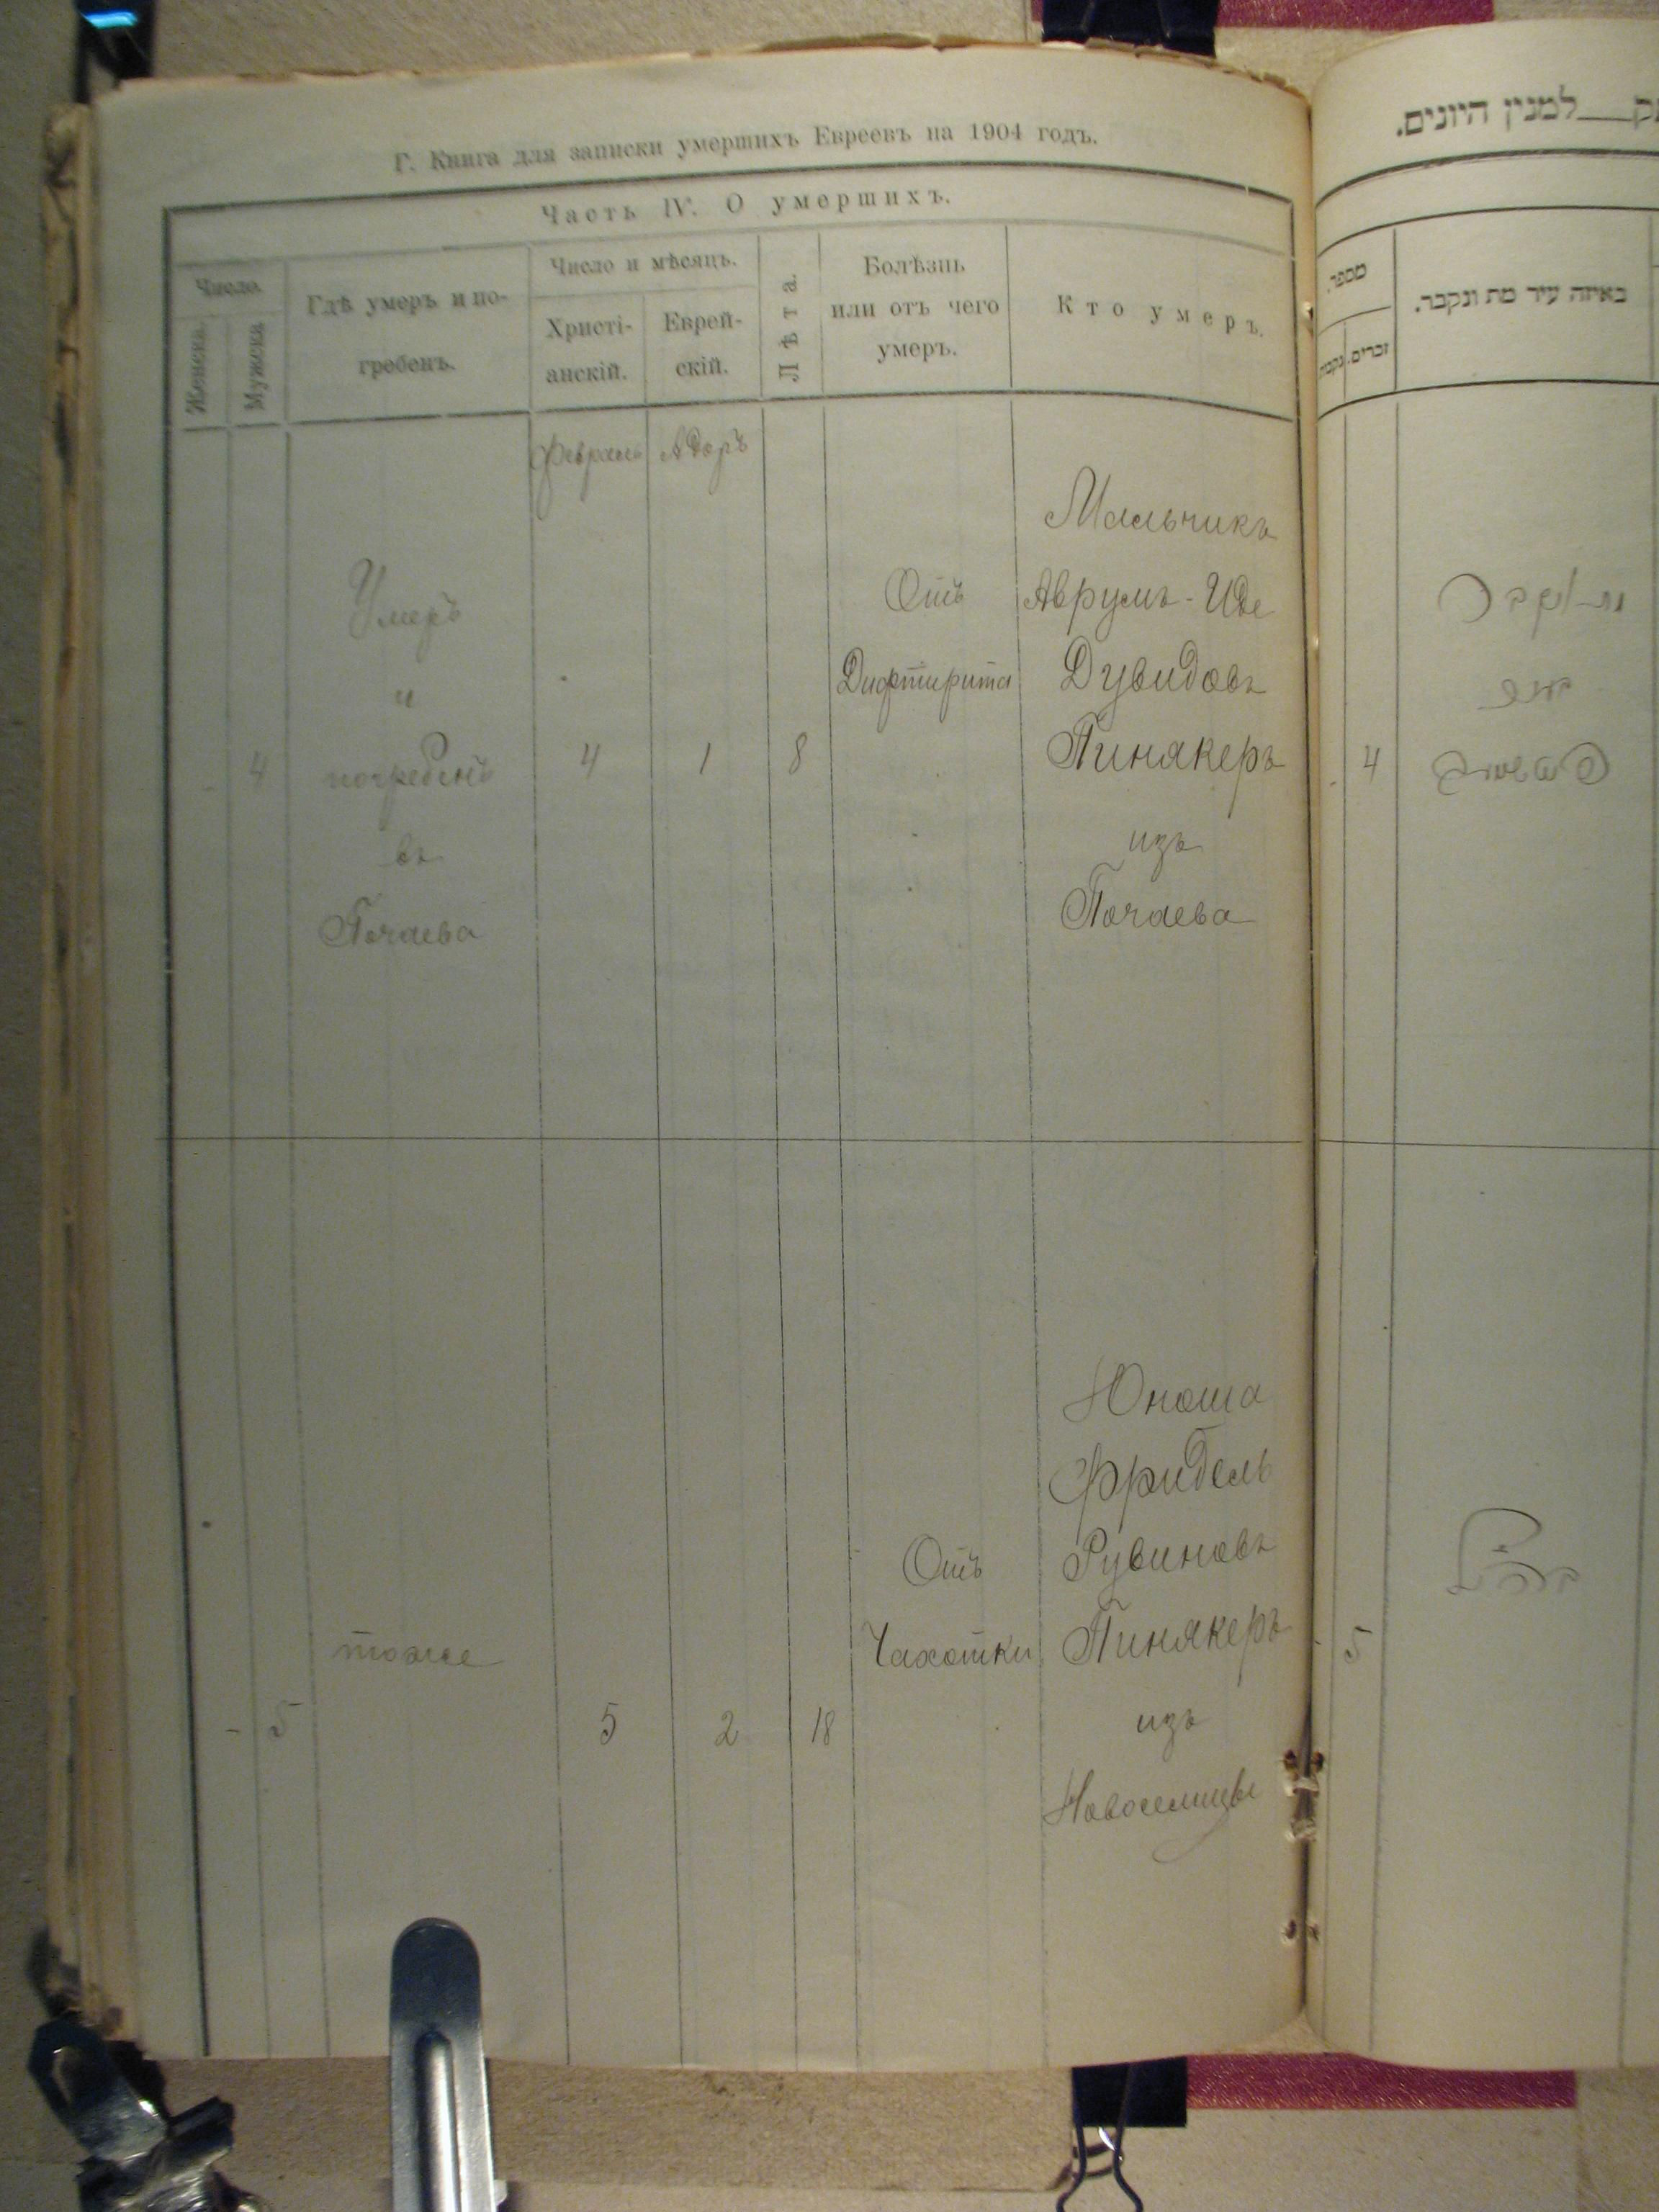 Г. Книга для записки умершихъ Евреевъ на 1904 годъ.
Часть IV. О умершихъ.
Число.
Женска.
Мужска
Гдѣ умеръ и по-
гребенъ.
Число и мѣсяцъ.
Христі-
анскій.
Еврей-
скій.
Лѣта.
Болѣзнь
или отъ чего
умеръ.
Кто умеръ.
Февраль Адаръ
4
Умеръ
и
погребенъ
въ
Почаева
4
1
8
Отъ
Дифтирита
Мальчикъ
Аврумъ-Иде
Дувидовъ
Пинякеръ
изъ
Почаева
5
тоже
5
2
18
Отъ
Чахотки
Юноша
Фридель
Рувиновъ
Пинякеръ
изъ
Новоселицы
למנין היונים.
מספר.
זכרים.
נקבות
באיזה עיר מת ונקבר.
4
5